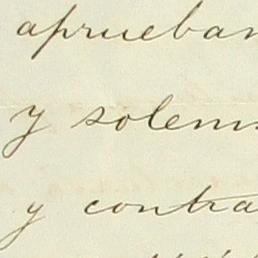 aprueban
y solem
y contra